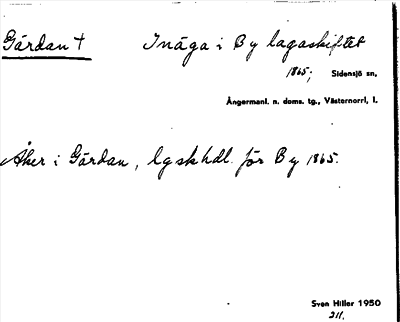 Gärdan † Inäga i By lagaskiftet
1865; Sidensjö sn,
Ångermanl. n. doms. tg., Västernorrl, l.
Åker i Gärdan, lgskhdl. för By 1865.
Sven Hiller 1950
211.